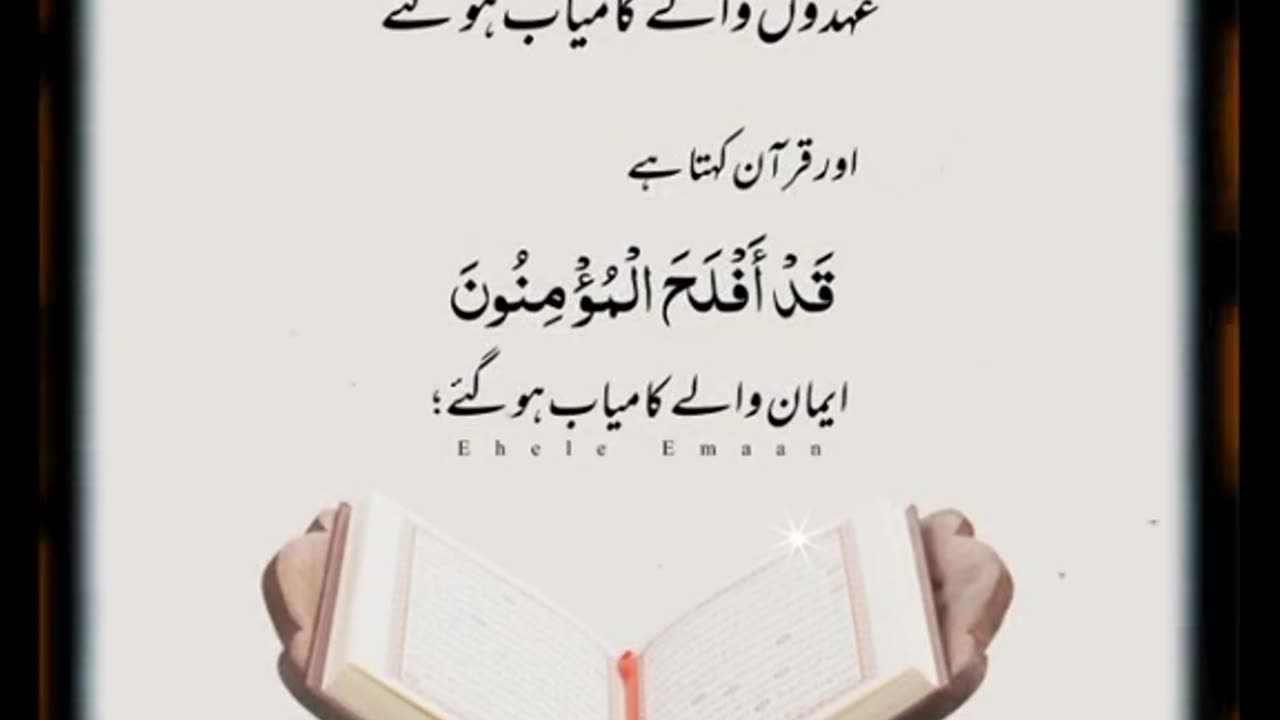 عہدوں والے کامیاب ہو گئے
اور قرآن کہتا ہے
قَدْ أَفْلَحَ الْمُؤْمِنُونَ
ایمان والے کامیاب ہو گئے؛
Ehele Emaan